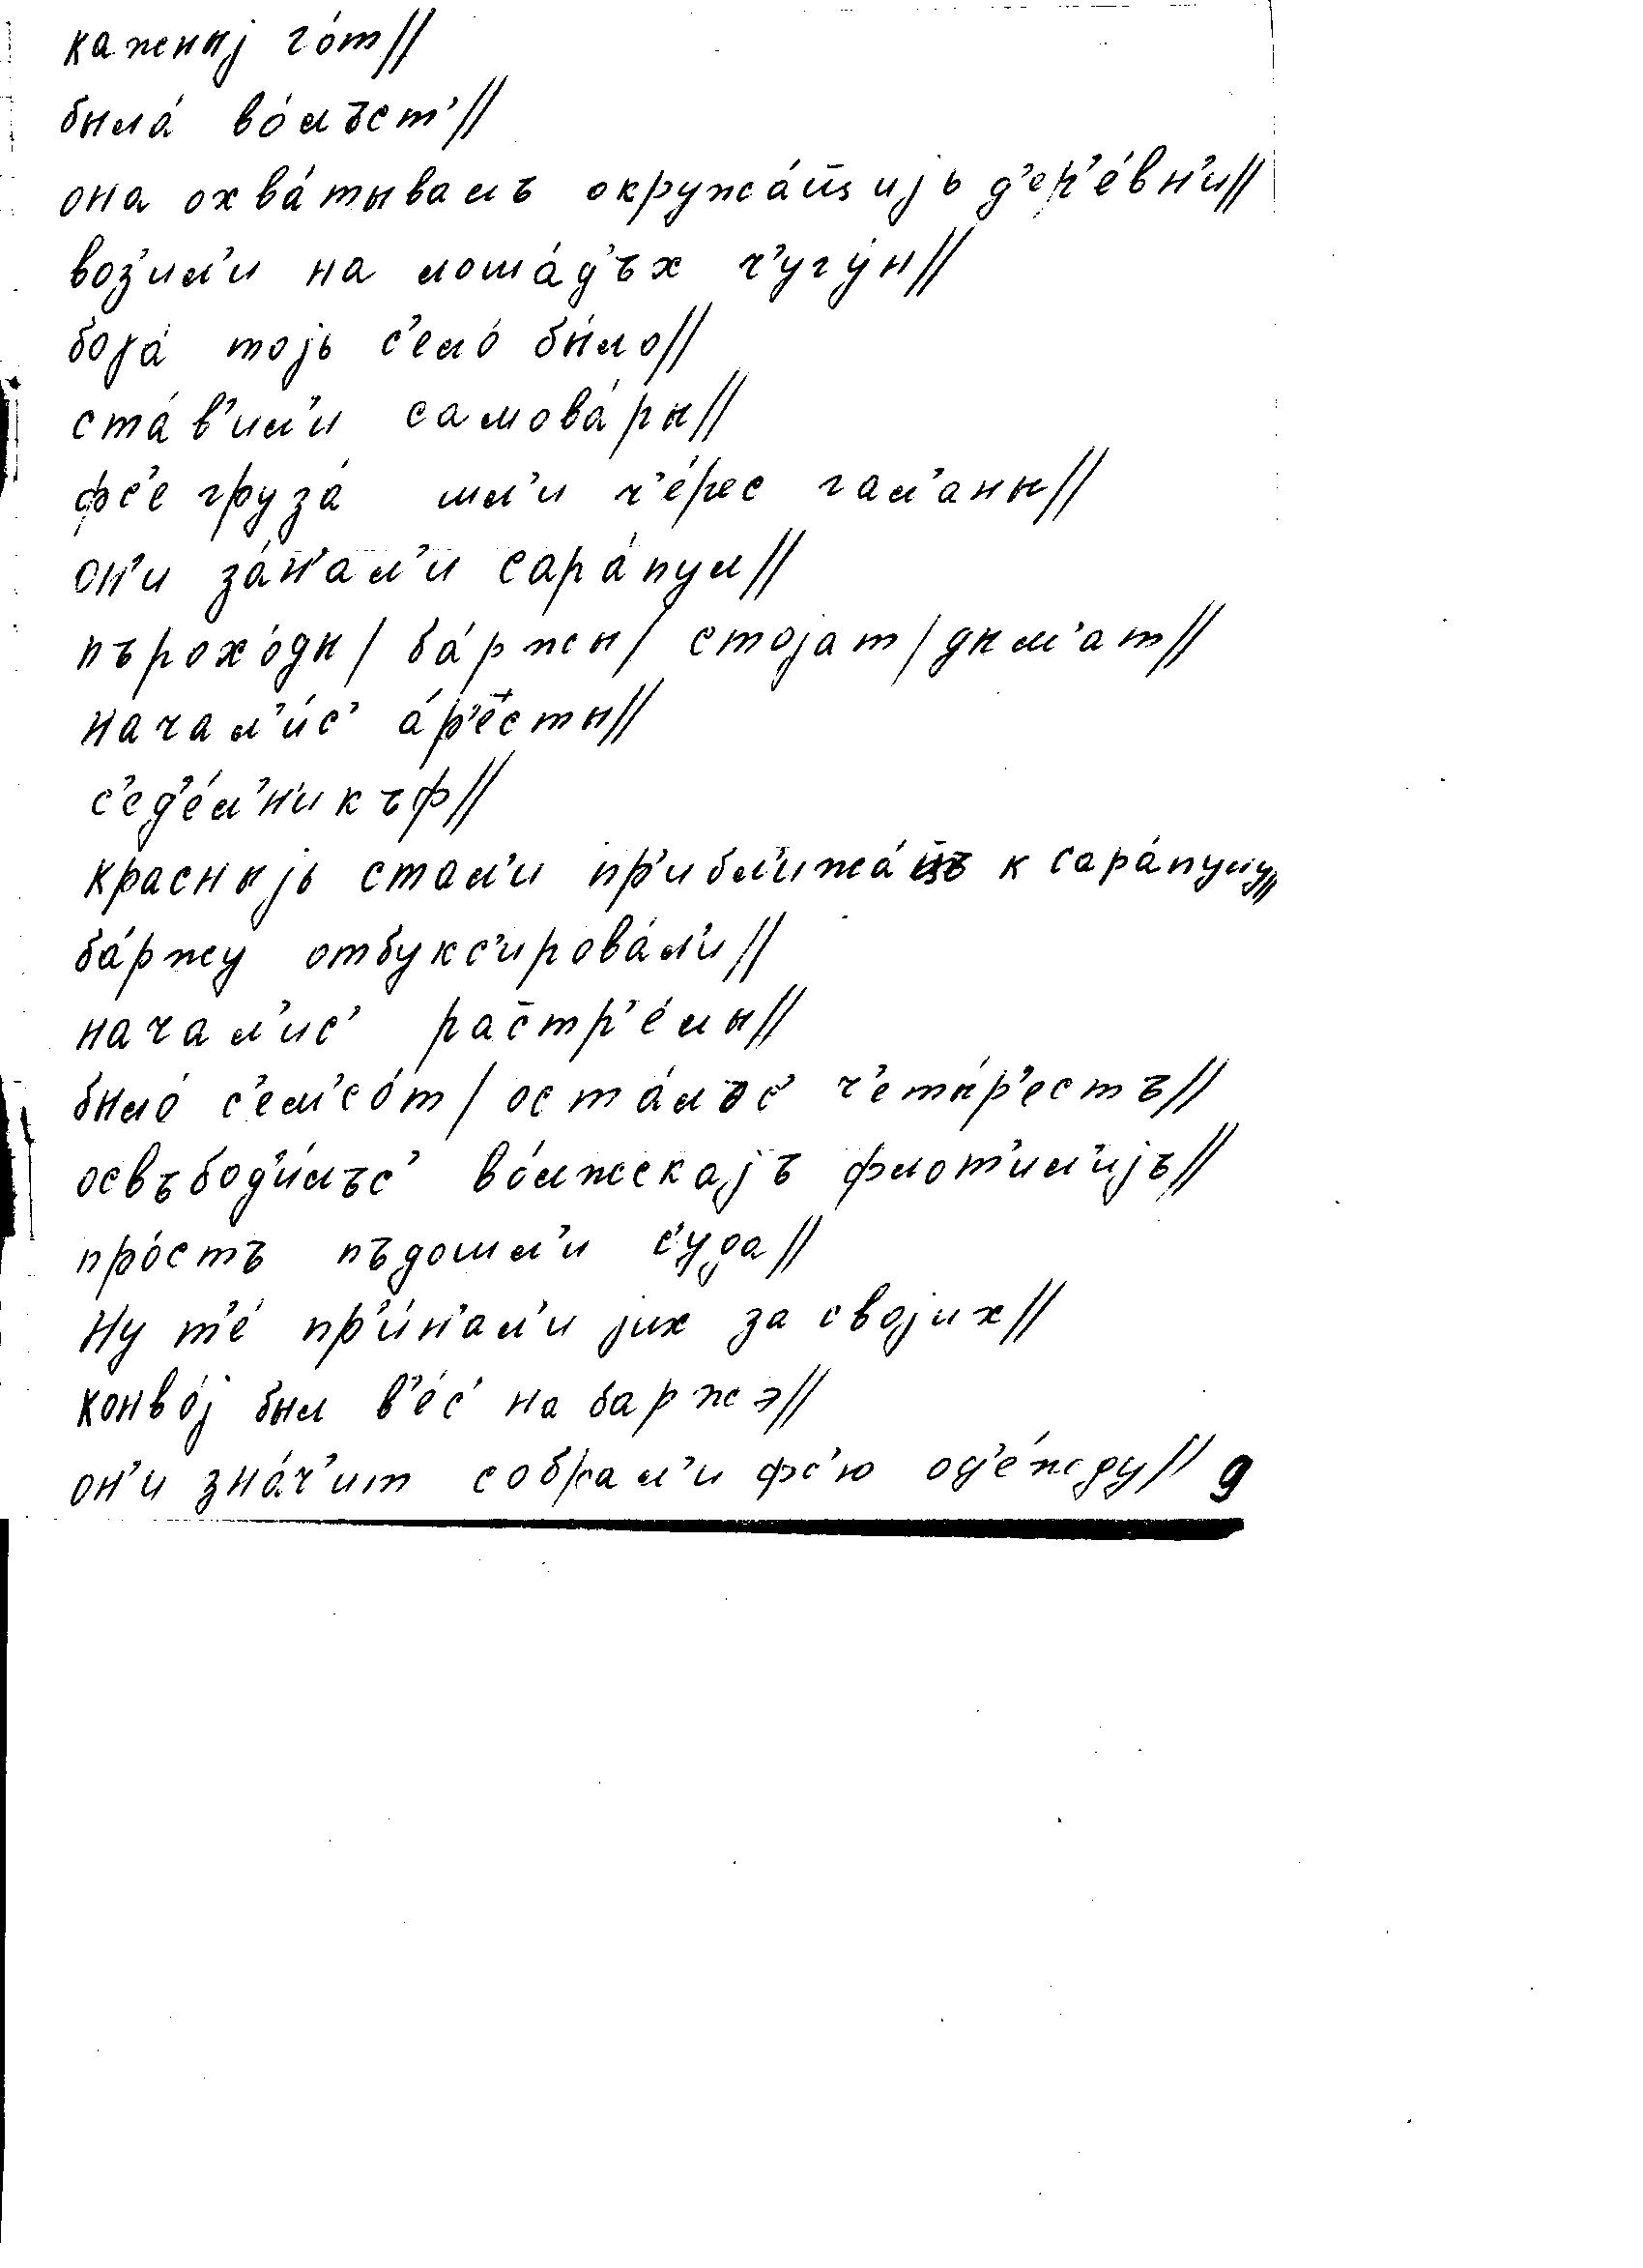 кажныј го́т//
была́ во́лъст'//
она охва́тывалъ окружа́йщијь д'ер'е́вн'и//
воз'ил'и на лоша́д'ъх ч'угу́н//
бога́ тојь с'ело́ бы́ло//
ста́в'ил'и самова́ры//
фс'е груза́ шл'и ч'е́рес гал'аны//
он'и за́н'ал'и сара́пул//
пърохо́ды/ ба́ржы/ стојат/ дым'ат//
начал'и́с' а́р'е̄сты//
с'ед'е́л'н'икъф//
красныјь стал'и пр'ибл'ижа́ц̄ъ к сара́пулу//
ба́ржу отбукс'ирова́л'и//
начал'ис' рас̄тр'е́лы//
было́ с'ем'со́т/ оста́лъс' ч'еты́р'естъ//
освъбод'и́лъс' во́лжскајъ флот'ил'ијъ//
про́стъ пъдошл'и с'уда//
ну т'е́ пр'и́н'ал'и јих за својих//
конво́ј был в'е́с' на баржэ//
он'и зна́ч'ит собрал'и фс'ю од'е́жду// 9